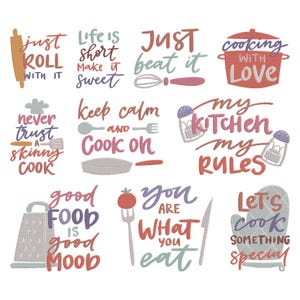 just
ROLL
WITH IT
Life is
short
make it
sweet
JUST
beat it
cooking
WITH
LOVE
never
trust
a
skinny
COOK
keep calm
AND
COOK ON
my
KITCHEN
my
RULES
good
FOOD
IS
good
MOOD
you
ARE
WHAT
you
eat
LET'S
cook
SOMETHING
special